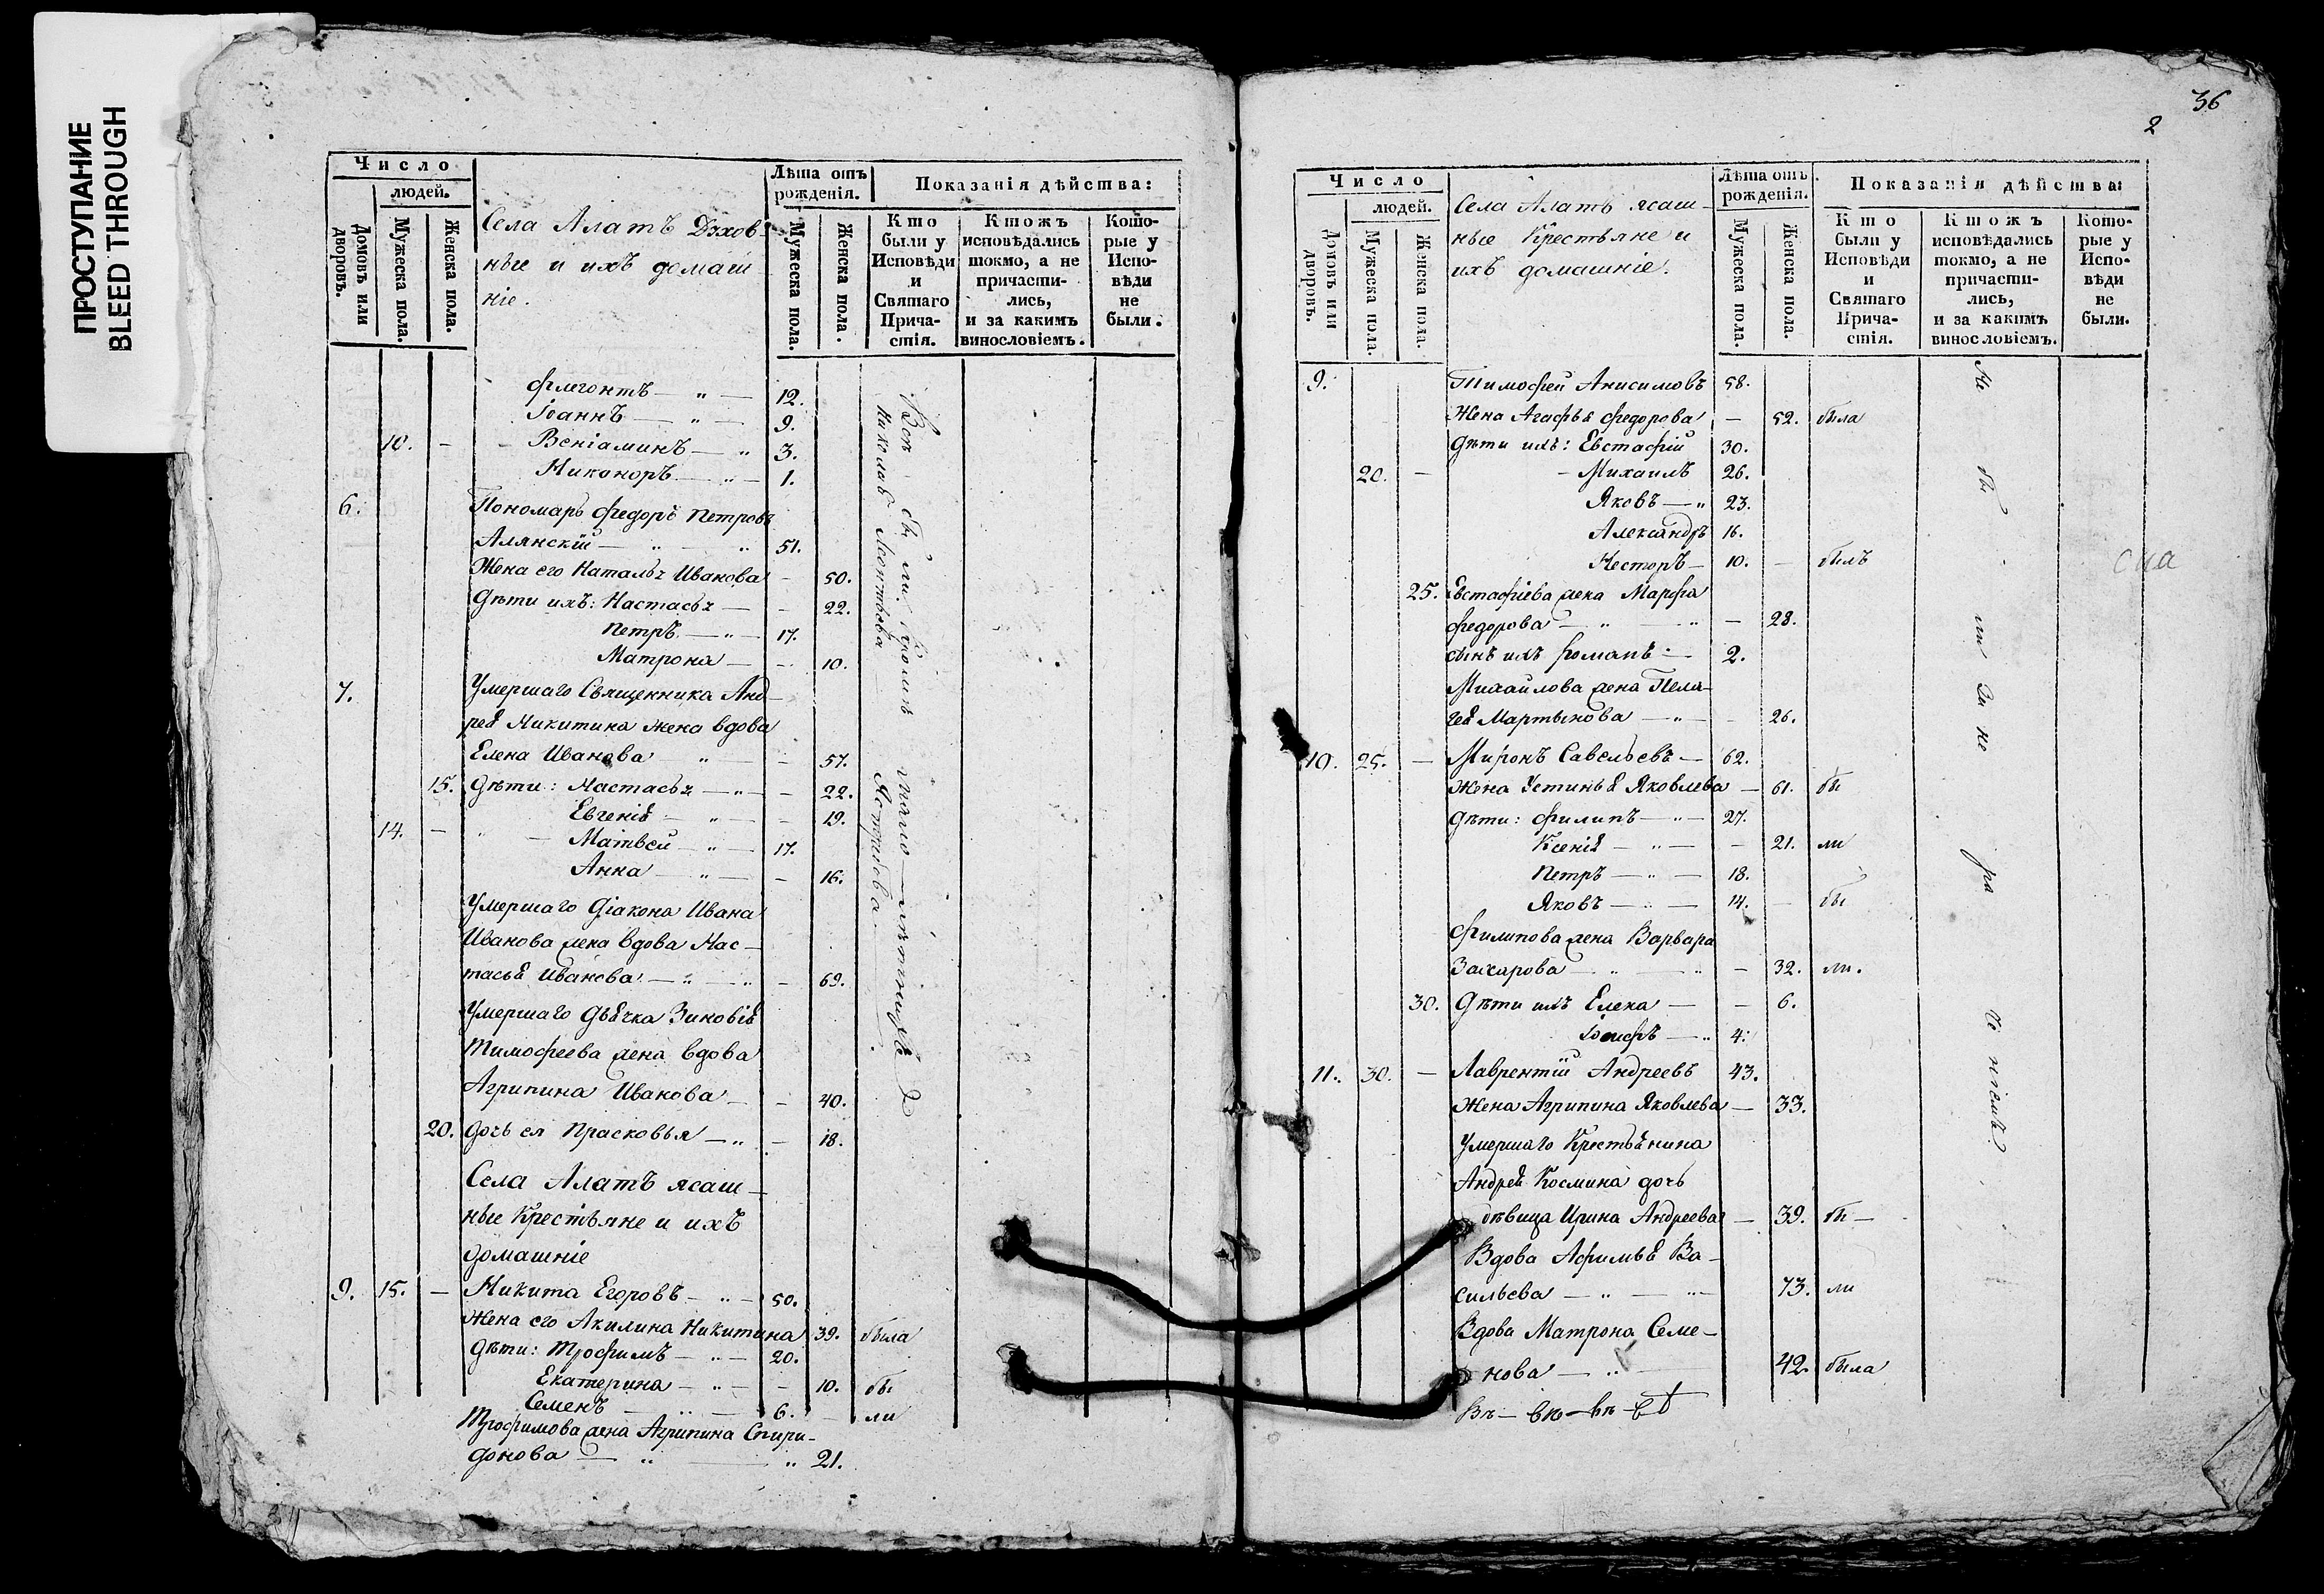 ПРОСТУПАНИЕ
BLEED THROUGH
Число
людей.
Домовъ или дворовъ.
Мужеска пола.
Женска пола.
Села Алатъ Духов-
ные и ихъ домаш
ніе.
Лѣта отъ рожденія.
Мужеска пола.
Женска пола.
Показанія дѣйства:
Кто были у Исповѣди и Святаго Прича-стія.
Ктожъ исповѣдались токмо, а не причасти-лись, и за какимъ винословіемъ.
Кото-рые у Испо-вѣди не были.
Флегонтъ — „ — 12.
Іоаннъ — „ — 9.
10. — Веніаминъ — „ 3.
Никоноръ — „ — 1.
6. Пономарь Федоръ Петровъ
Алянскій — „ — „ 51.
Жена его Наталья Иванова — 50.
Дѣти ихъ: Настасья — — 22.
Петръ — „ — 17.
Матрона — — 10.
7. Умершаго Священника Анд-
рея Никитина жена вдова
Елена Иванова „ — — 57.
15. Дѣти: Настасья — „ — — 22.
Евгенія — „ — — 19.
14. — „ — Матвей — „ — 17.
Анна — „ — — 16.
Умершаго Діакона Ивана
Иванова жена вдова Нас-
тасья Иванова — „ — „ — 69.
Умершаго Дьячка Зиновія
Тимофеева жена вдова
Агрипина Иванова — — 40.
20. Дочь ея Прасковья — „ — 18.
Села Алатъ ясаш-
ные Крестьяне и ихъ
домашніе
9. 15. — Никита Егоровъ — „ — 50.
Жена его Акилина Никитина 39. была
Дѣти: Трофимъ — „ — 20.
Екатерина — „ — — 10. бы
Семенъ — „ — 6. — ли
Трофимова жена Агрипина Спири-
донова — „ — „ 21.
36
2
Число
людей.
Домовъ или дворовъ.
Мужеска пола.
Женска пола.
Села Алатъ ясаш-
ные Крестьяне и
ихъ домашніе.
Лѣта отъ рожденія.
Мужеска пола.
Женска пола.
Показанія дѣйства:
Кто были у Исповѣди и Святаго Прича-стія.
Ктожъ исповѣдались токмо, а не причасти-лись, и за какимъ винословіемъ.
Кото-рые у Испо-вѣди не были.
9. Тимофей Анисимовъ 58.
Жена Агафья Федорова — 52. была
Дѣти ихъ: Евстафій 30.
20. — — Михаилъ 26.
Яковъ — „ 23.
Александръ 16.
Несторъ — 10. — былъ
25. Евстафіева жена Марфа
Федорова — „ — „ — 28.
сынъ ихъ Романъ — 2.
Михайлова жена Пела-
гея Мартынова — „ — 26.
10. 25. — Миронъ Савельевъ — 62.
Жена Устинья Яковлева — 61. бы
Дѣти: Филипъ — „ — 27.
Ксенія — „ — — 21. ли
Петръ — „ — 18.
Яковъ — „ — 14. — бы
Филипова жена Варвара
Захарова — „ — „ — 32. ли.
30. Дѣти ихъ Елена — — 6.
Іосифъ — „ 4.
11. 30. — Лаврентій Андреевъ 43.
Жена Агрипина Яковлева — 33.
Умершаго Крестьянина
Андрея Космина дочь
дѣвица Ирина Андреева — 39. бы —
Вдова Афимья Ва-
сильева — „ — „ — 73. ли
Вдова Матрона Семе-
нова — „ — 42. была